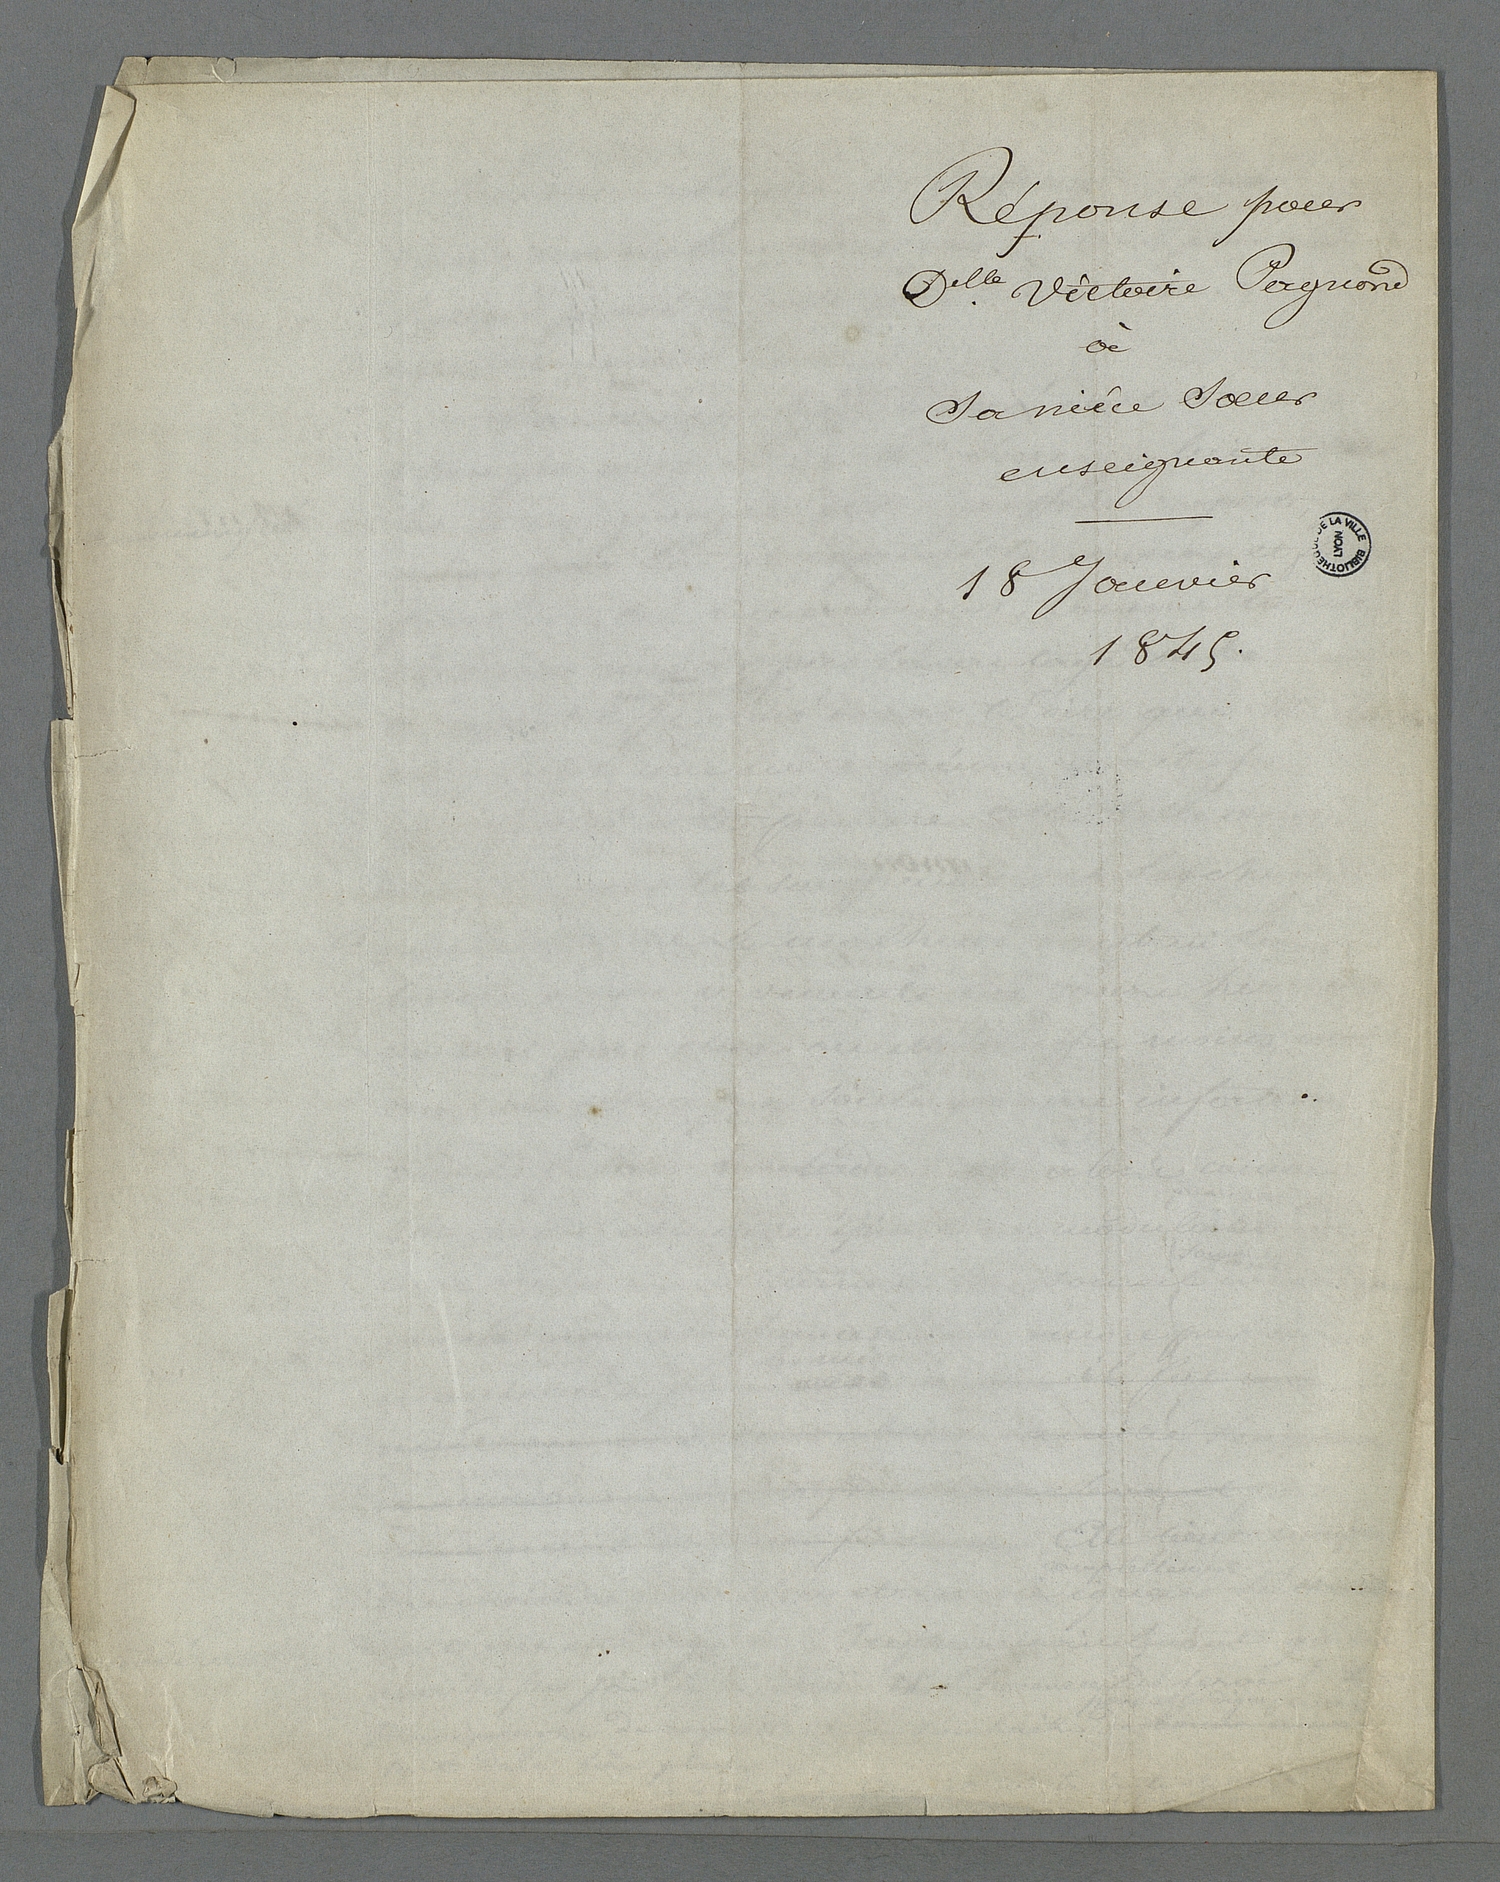 Réponse pour
Delle Victoire Pergnond
à
Sa nièce Sœur
enseignante
18 Janvier
1845.
BIBLIOTHEQUE DE LA VILLE
LYON